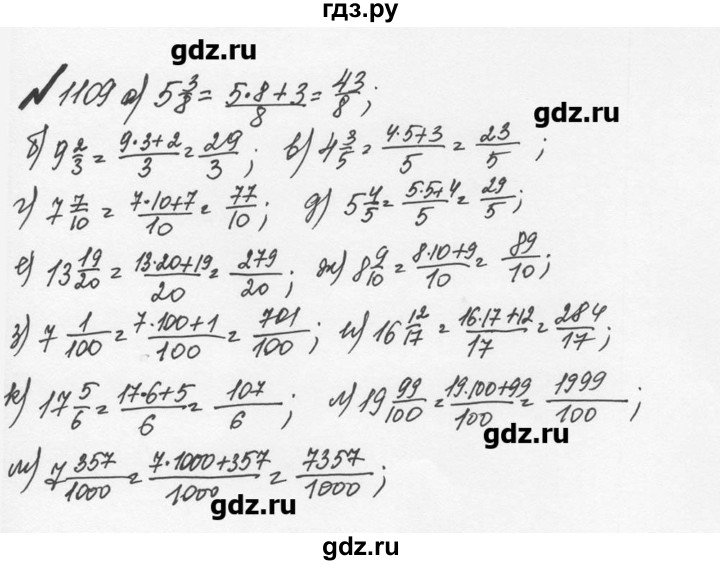 гдз.ру
gdz.ru
gdz.ru
№ 1109 а) 5 3/8 = (5·8+3)/8 = 43/8;
б) 9 2/3 = (9·3+2)/3 = 29/3; в) 4 3/5 = (4·5+3)/5 = 23/5;
г) 7 7/10 = (7·10+7)/10 = 77/10; д) 5 4/5 = (5·5+4)/5 = 29/5;
е) 13 19/20 = (13·20+19)/20 = 279/20; ж) 8 9/10 = (8·10+9)/10 = 89/10;
з) 7 1/100 = (7·100+1)/100 = 701/100; и) 16 12/17 = (16·17+12)/17 = 284/17;
к) 17 5/6 = (17·6+5)/6 = 107/6; л) 19 99/100 = (19·100+99)/100 = 1999/100;
gdz.ru
м) 7 357/1000 = (7·1000+357)/1000 = 7357/1000;
gdz.ru
gdz.ru